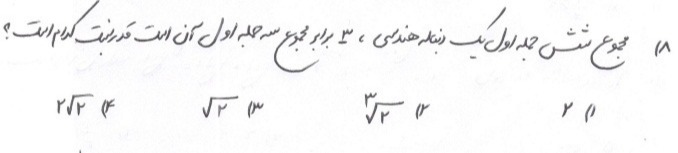 ۱۸) مجموع شش جمله اول یک دنباله هندسی، ۳ برابر مجموع سه جمله اول آن است قدر نسبت کدام است؟
۱) ۲ ۲) ∛۲ ۳) √۲ ۴) ۲√۲